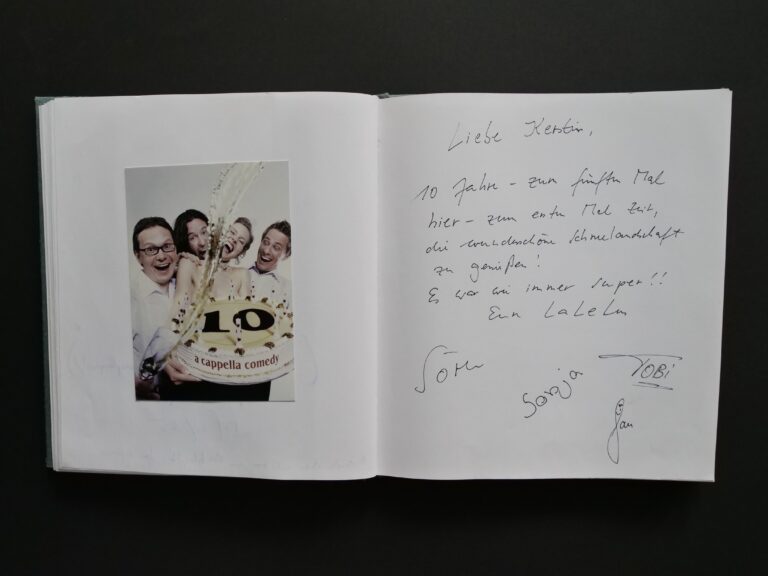 10
a cappella comedy
Liebe Kerstin,
10 Jahre - zum fünften Mal
hier - zum ersten Mal Zeit,
die wunderschöne Schneelandschaft
zu genießen!
Es war wie immer super!!
Eure LaLeLu
Sören
Sanja
TOBI
Jan